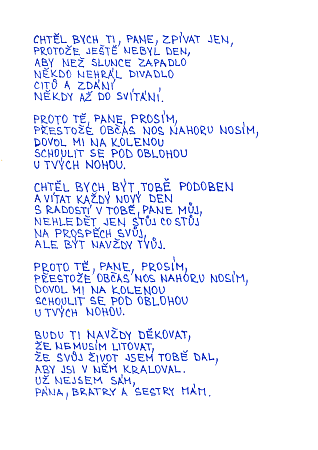 CHTĚL BYCH TI, PANE, ZPÍVAT JEN,
PROTOŽE JEŠTĚ NEBYL DEN,
ABY NEŽ SLUNCE ZAPADLO
NĚKDO NEHRÁL DIVADLO
CITŮ A ZDÁNÍ
NĚKDY AŽ DO SVÍTÁNÍ.

PROTO TĚ, PANE, PROSÍM,
PŘESTOŽE OBČAS NOS NAHORU NOSÍM,
DOVOL MI NA KOLENOU
SCHOULIT SE POD OBLOHOU
U TVÝCH NOHOU.

CHTĚL BYCH BÝT TOBĚ PODOBEN
A VÍTAT KAŽDÝ NOVÝ DEN
S RADOSTÍ V TOBĚ, PANE MŮJ,
NEHLEDĚT JEN STŮJ CO STŮJ
NA PROSPĚCH SVŮJ,
ALE BÝT NAVŽDY TVŮJ.

PROTO TĚ, PANE, PROSÍM,
PŘESTOŽE OBČAS NOS NAHORU NOSÍM,
DOVOL MI NA KOLENOU
SCHOULIT SE POD OBLOHOU
U TVÝCH NOHOU.

BUDU TI NAVŽDY DĚKOVAT,
ŽE NEMUSÍM LITOVAT,
ŽE SVŮJ ŽIVOT JSEM TOBĚ DAL,
ABY JSI V NĚM KRALOVAL.
UŽ NEJSEM SÁM,
PÁNA, BRATRY A SESTRY MÁM.